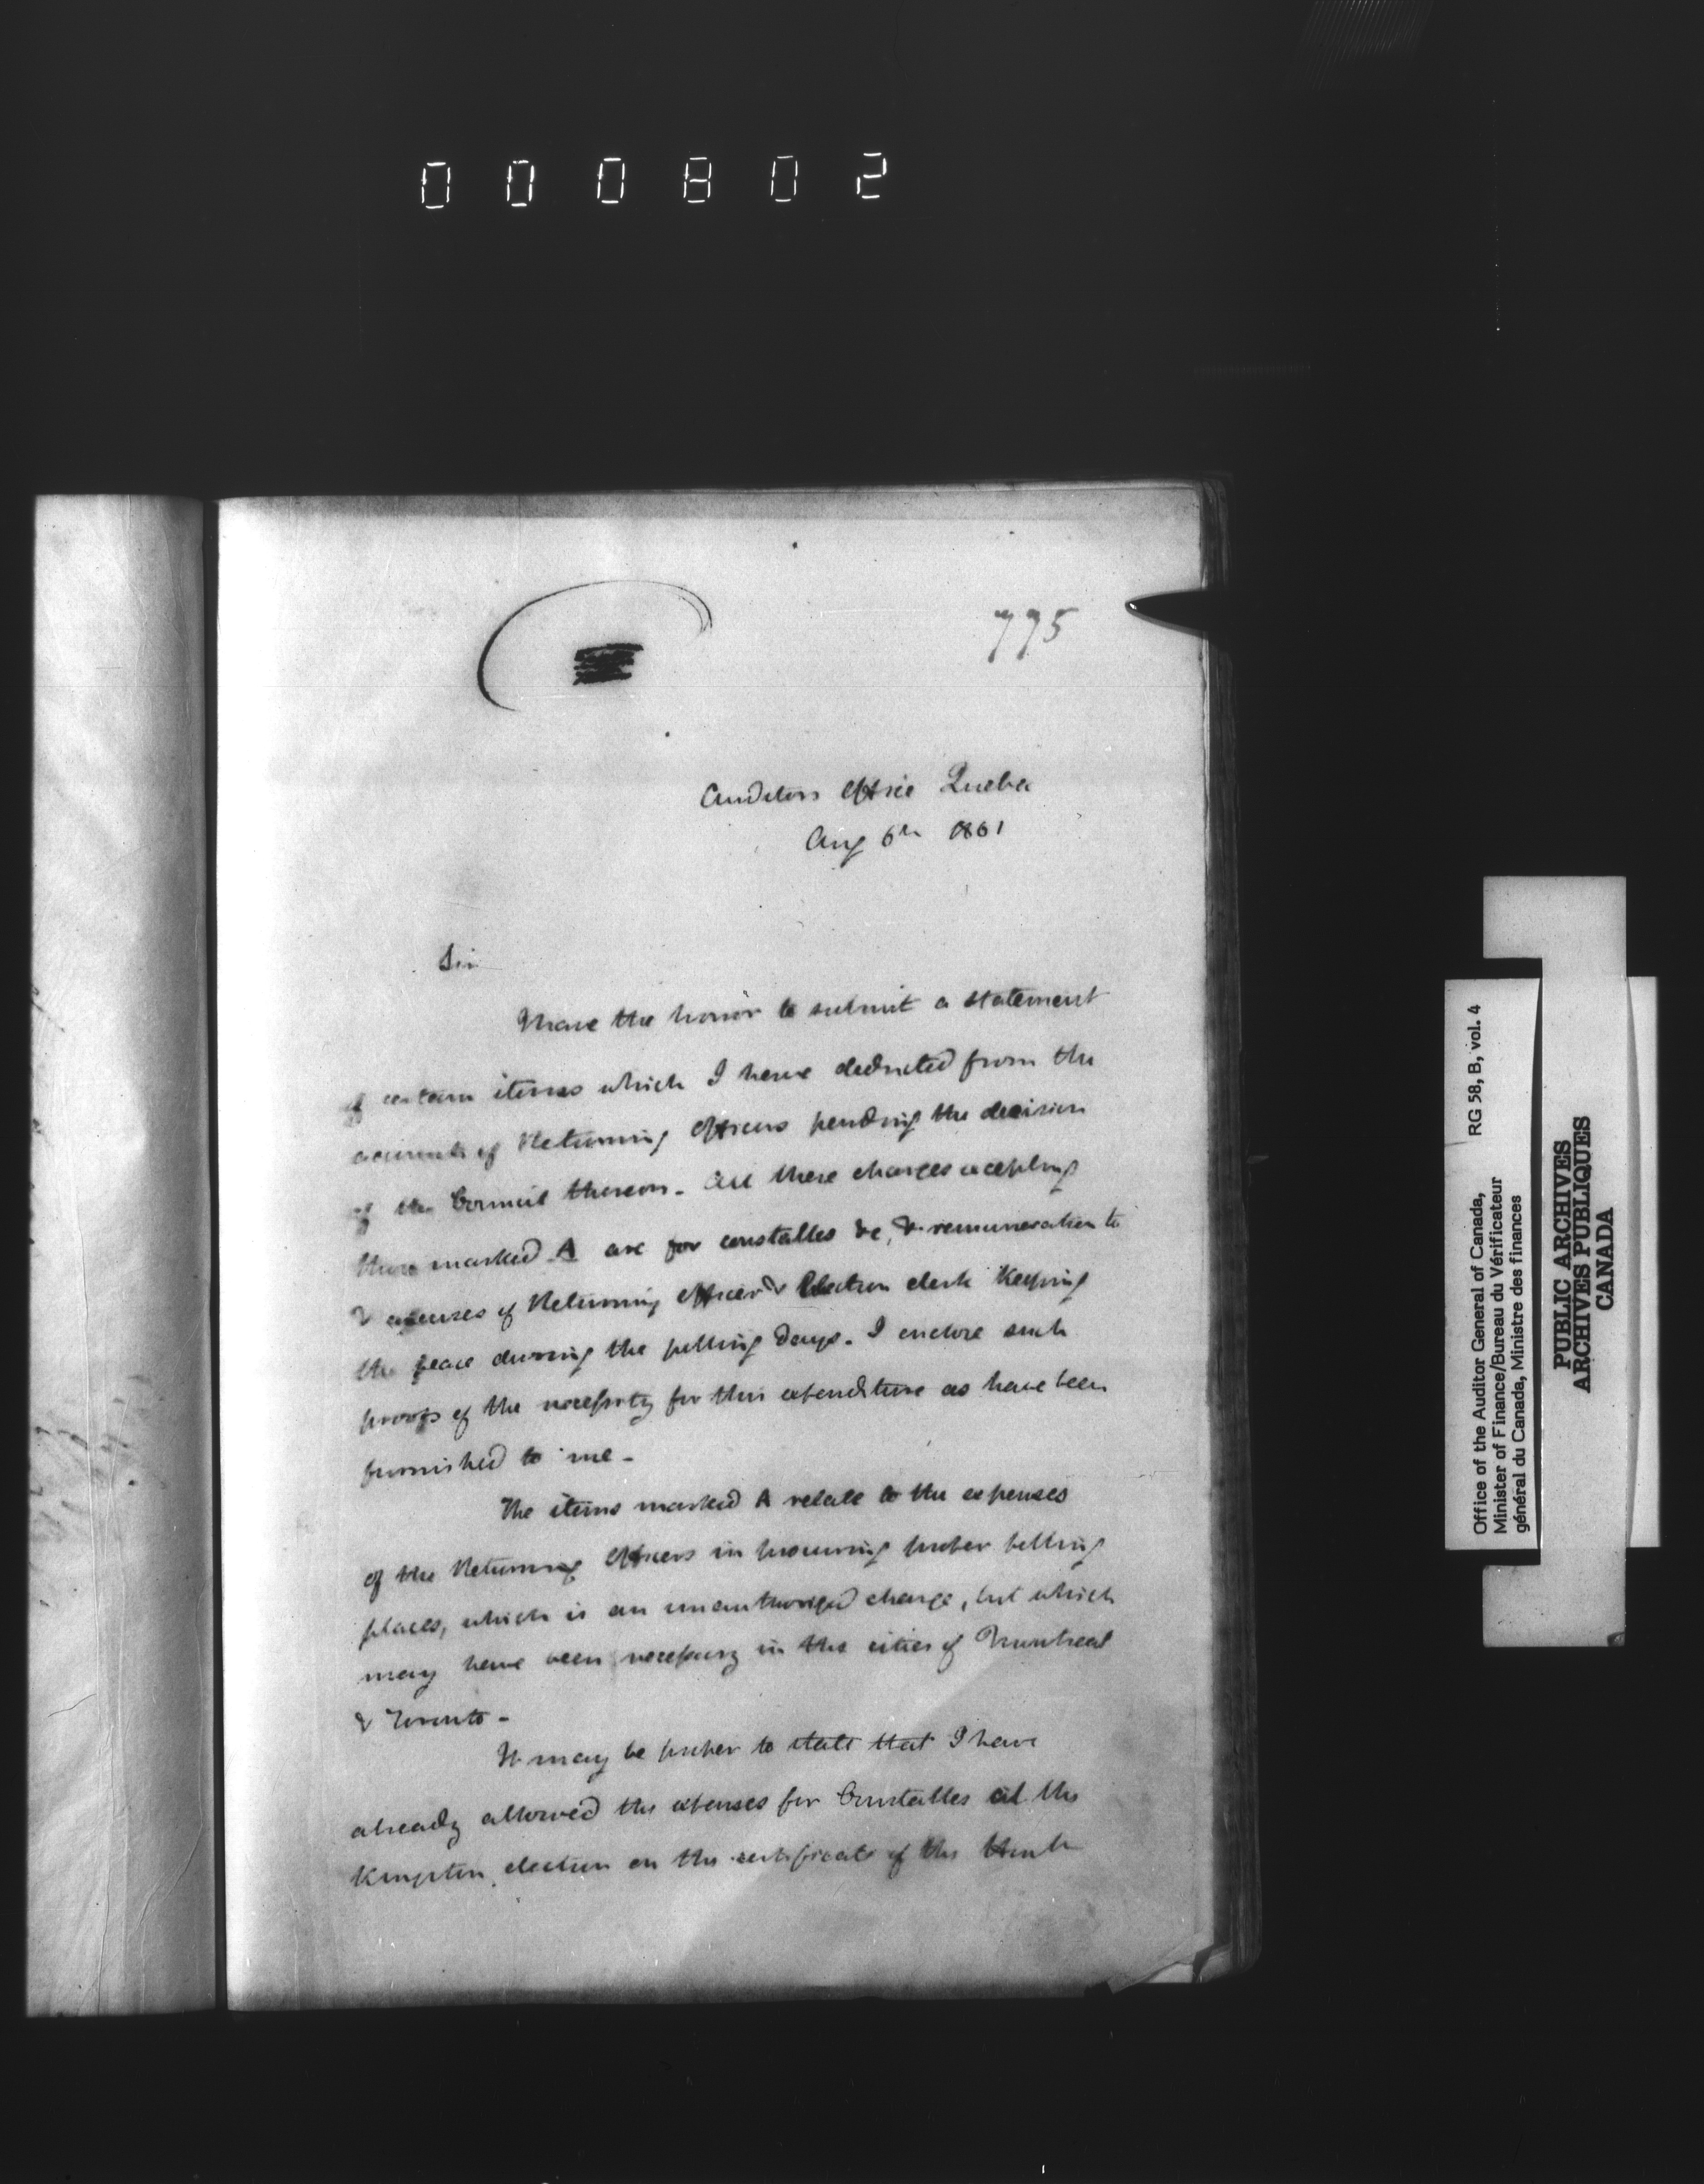 000802
775
Auditors Office Quebec
Aug 6th 1861
Sir
I have the honor to submit a statement
of certain items which I have deducted from the
accounts of Returning Officers pending the decision
of the Council thereon. All these charges excepting
those marked A are for constables &c, & remuneration to
& expenses of Returning Officer & Election clerk Keeping
the peace during the polling days. I enclose such
proofs of the necessity for this expenditure as have been
furnished to me -
The items marked A relate to the expenses
of the Returning Officers in procuring proper polling
places, which is an unauthorized charge, but which
may have been necessary in the cities of Montreal
& Toronto -
It may be proper to state that I have
already allowed the expenses for Constables at the
Kingston election on the certificate of the
RG 58, B, vol. 4
Office of the Auditor General of Canada,
Minister of Finance/Bureau du Vérificateur
général du Canada, Ministre des finances
PUBLIC ARCHIVES
ARCHIVES PUBLIQUES
CANADA